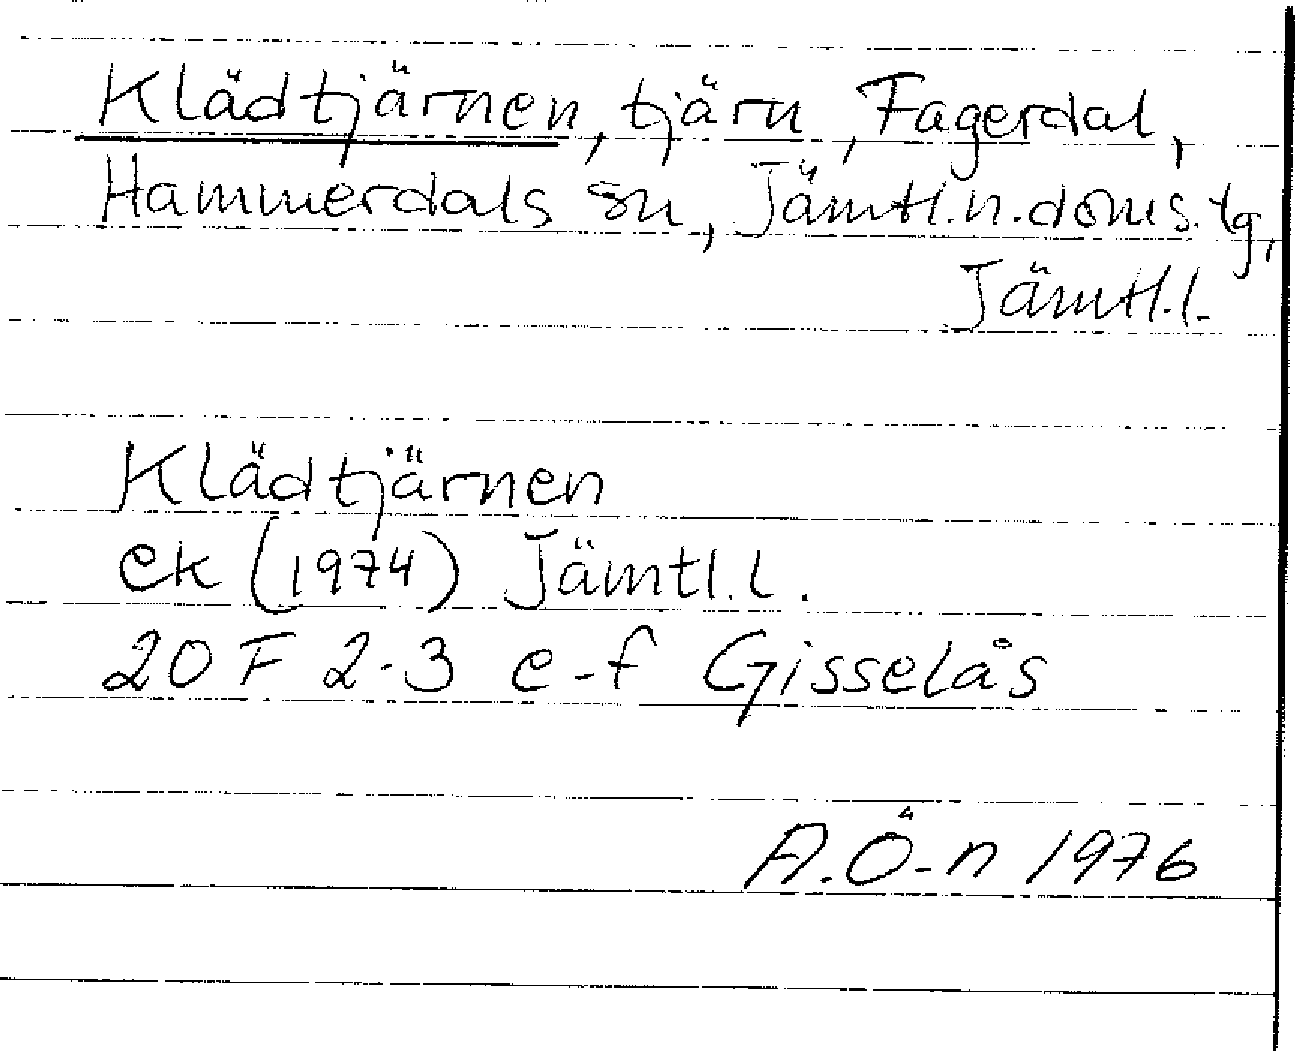 Klädtjärnen, tjärn, Fagerdal,
Hammerdals sn, Jämtl.n.doms.tg,
Jämtl.l.
Klädtjärnen
ek (1974) Jämtl.l.
20 F 2-3 e-f Gisselås
A.Ö-n 1976